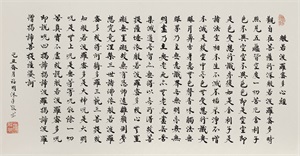 般若波羅蜜多心經
觀自在菩薩行深般若波羅蜜多時
照見五蘊皆空度一切苦厄舍利子
色不異空空不異色色即是空空即
是色受想行識亦復如是舍利子是
諸法空相不生不滅不垢不淨不增
不減是故空中無色無受想行識無
眼耳鼻舌身意無色聲香味觸法無
眼界乃至無意識界無無明亦無無
明盡乃至無老死亦無老死盡無苦
集滅道無智亦無得以無所得故菩
提薩埵依般若波羅蜜多故心無罣
礙無罣礙故無有恐怖遠離顛倒夢
想究竟涅槃三世諸佛依般若波羅
蜜多故得阿耨多羅三藐三菩提故
知般若波羅蜜多是大神咒是大明
咒是無上咒是無等等咒能除一切
苦真實不虛故說般若波羅蜜多咒
即說咒曰揭諦揭諦波羅揭諦波羅僧
揭諦菩提薩婆訶